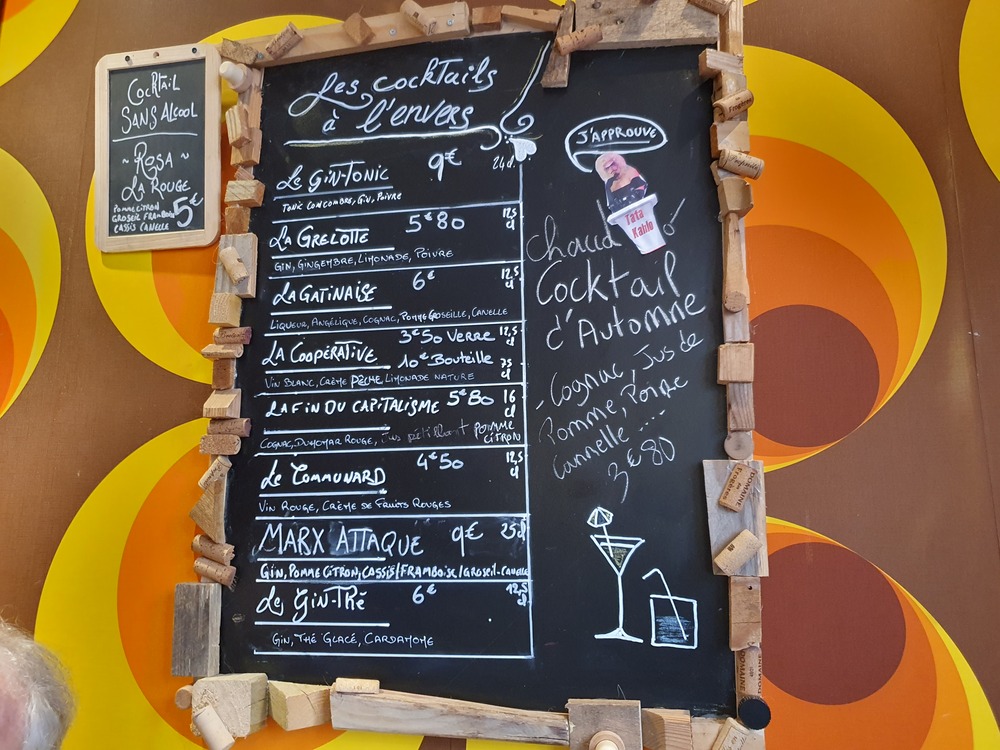 Cocktail
Sans Alcool
~ Rosa ~
La Rouge
Pomme citron
Groseil Framboise
Cassis Canelle
5€
Les cocktails
à l'envers
Le Gin-Tonic 9€ 24cl
Tonic Concombre, Gin, Poivre
La Grelotte 5€80 12,5 cl
Gin, Gingembre, Limonade, Poivre
La Gatinaise 6€ 12,5 cl
Liqueur, Angélique, Cognac, Pomme Groseille, Canelle
La Coopérative 3€50 Verre 12,5 cl
10€ Bouteille 75 cl
Vin Blanc, Crème Pêche, Limonade nature
La Fin du Capitalisme 5€80 16 cl
Cognac, Rouge, Jus pétillant pomme citron
Le Communard 4€50 12,5 cl
Vin Rouge, Crème de Fruits Rouges
Marx Attaque 9€ 25cl
Gin, Pomme Citron, Cassis/Framboise/Groseil-Canelle
Le Gin-Thé 6€ 12,5 cl
Gin, Thé Glacé, Cardamome
J'approuve
Tata
Kahlo
chaud
Cocktail
d'Automne
- Cognac, Jus de
Pomme, Poire
Cannelle ....
3€80
Domaine
Frogères
Domaine